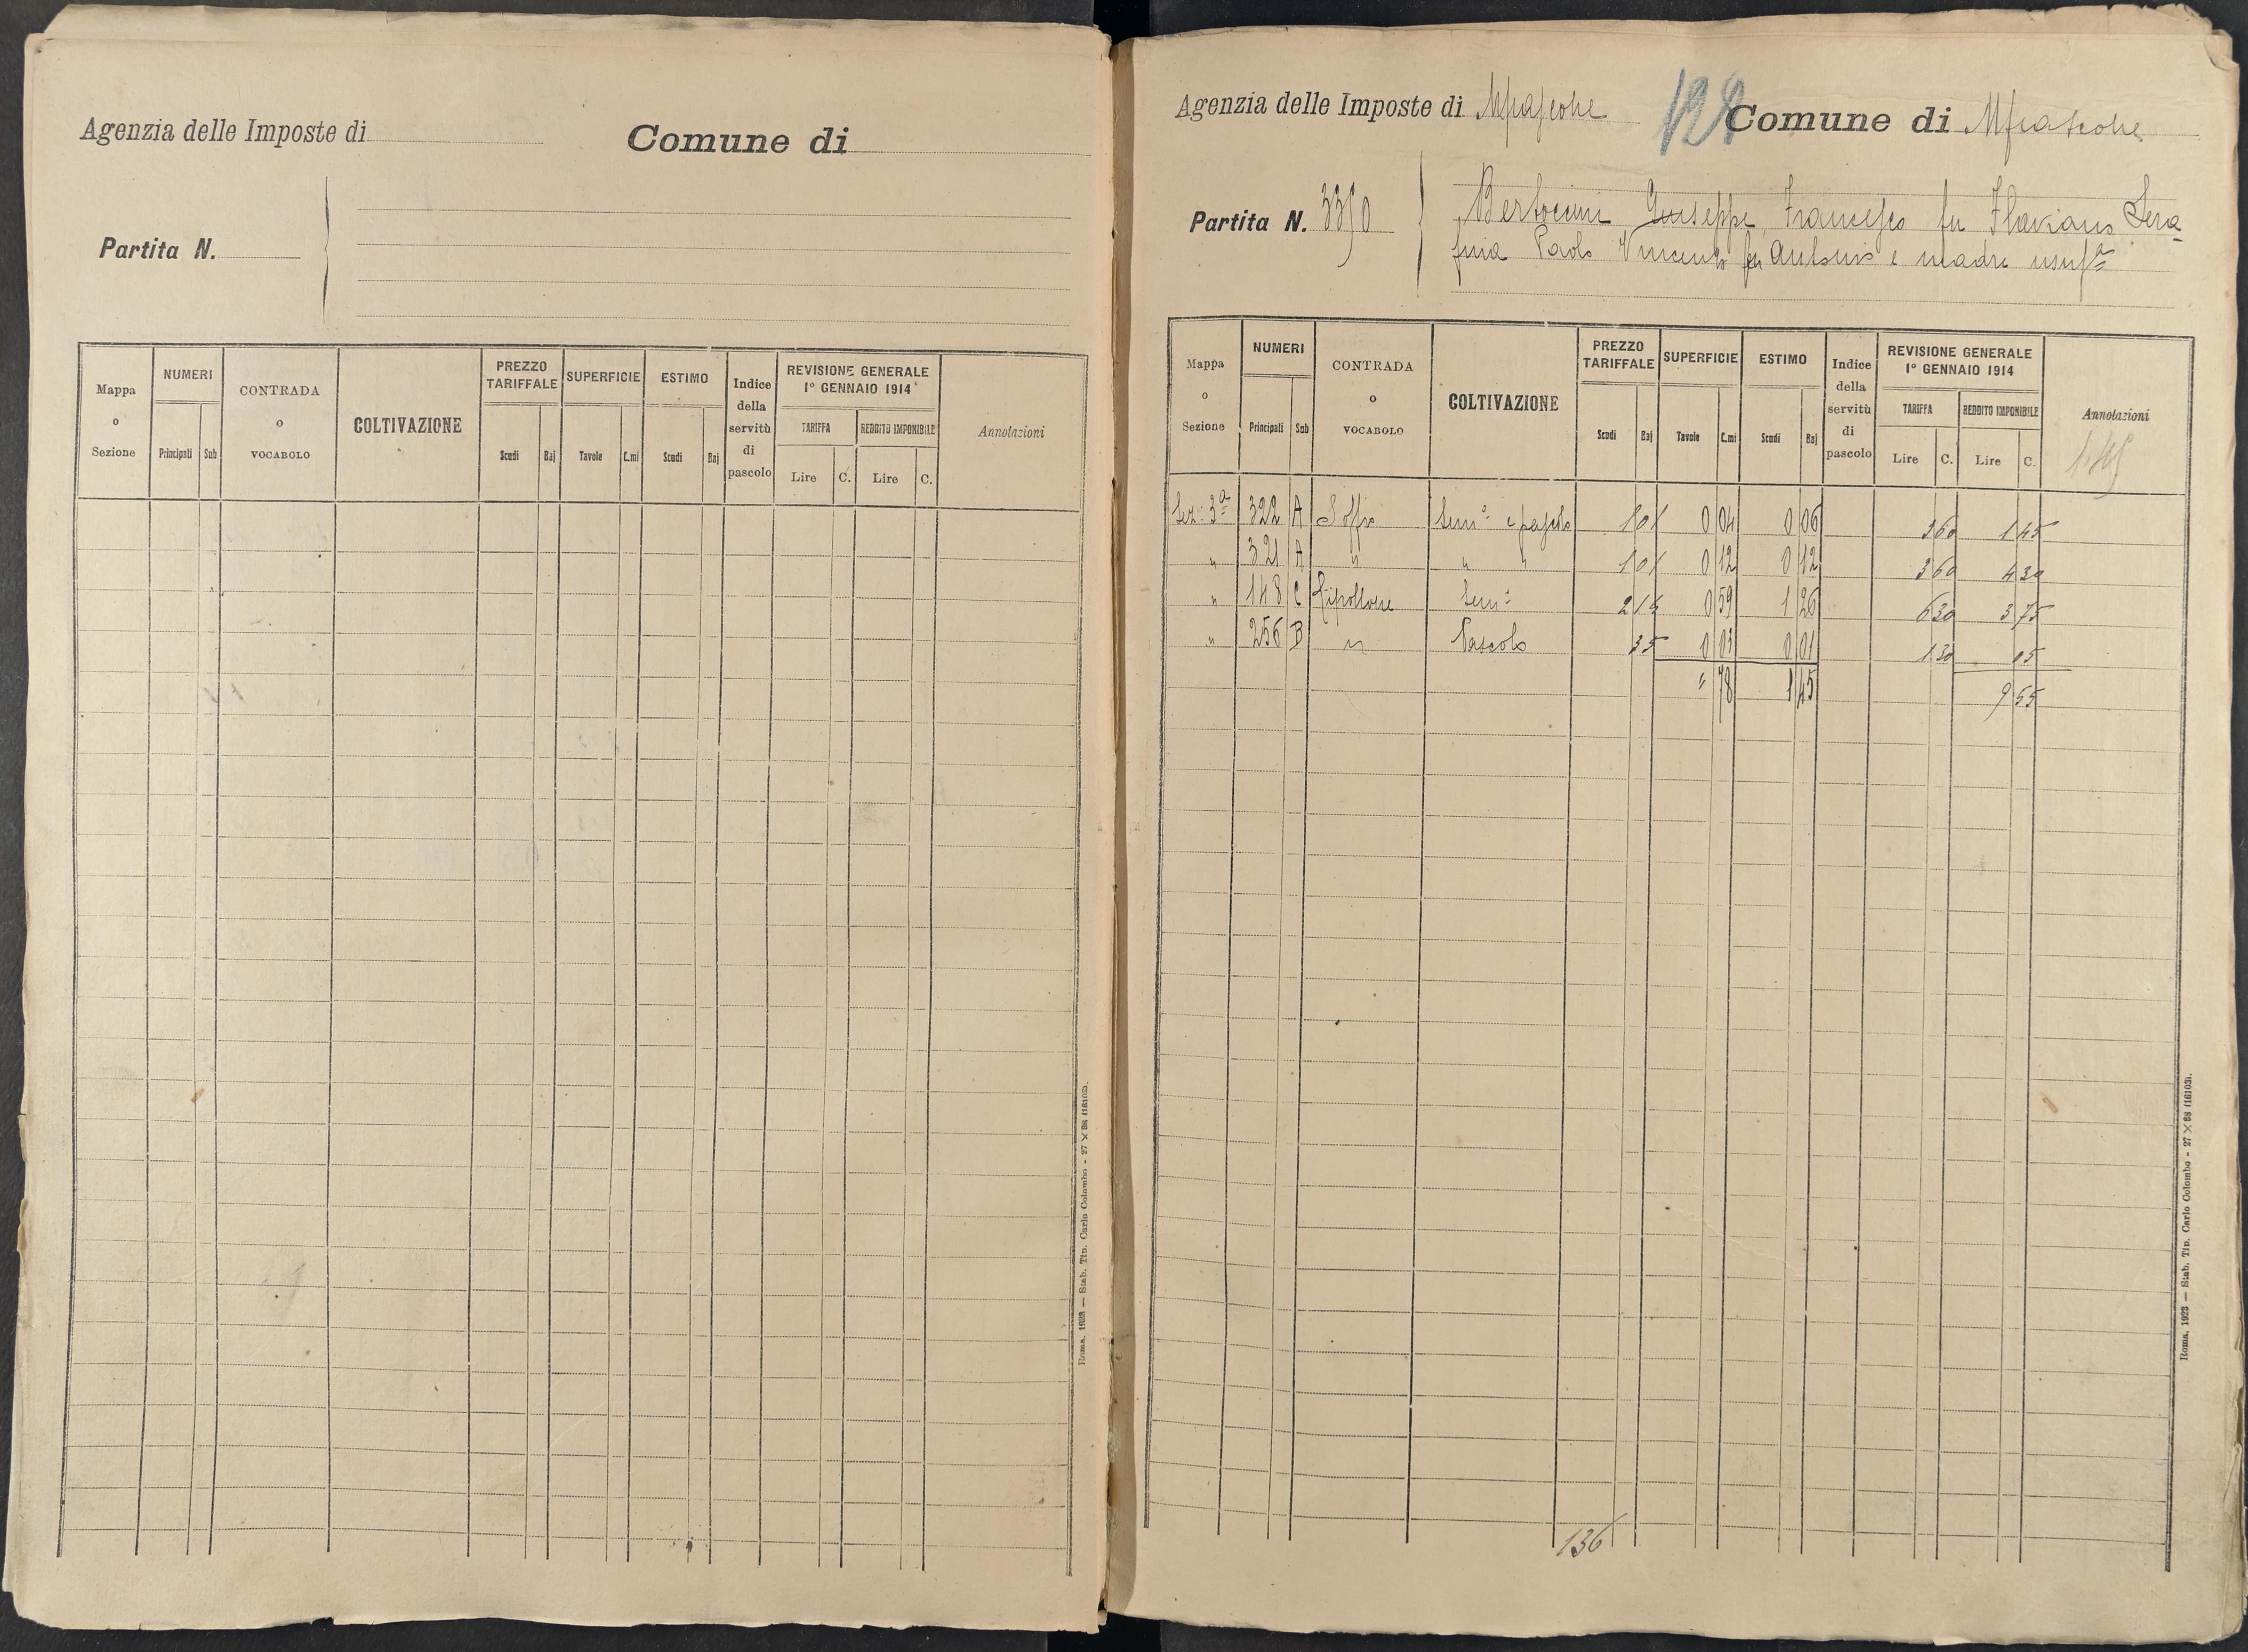 Agenzia delle Imposte di
Comune di
Partita N.
Mappa o Sezione
NUMERI
Principali Sub
CONTRADA o VOCABOLO
COLTIVAZIONE
PREZZO TARIFFALE
Scudi Baj
SUPERFICIE
Tavole C.mi
ESTIMO
Scudi Baj
Indice della servitù di pascolo
REVISIONE GENERALE
1° GENNAIO 1914
TARIFFA
Lire C.
REDDITO IMPONIBILE
Lire C.
Annotazioni
Roma, 1923 — Stab. Tip. Carlo Colombo - 27 × 38 (16103).
Agenzia delle Imposte di
128
Comune di
Partita N.
Giuseppe Francesco fu Flaviano Sera
fina Paolo Vincenzo fu Antonio e madre usufª
Mappa o Sezione
NUMERI
Principali Sub
CONTRADA o VOCABOLO
COLTIVAZIONE
PREZZO TARIFFALE
Scudi Baj
SUPERFICIE
Tavole C.mi
ESTIMO
Scudi Baj
Indice della servitù di pascolo
REVISIONE GENERALE
1° GENNAIO 1914
TARIFFA
Lire C.
REDDITO IMPONIBILE
Lire C.
Annotazioni
Sez: 3ª 322 A Semº e pascolo 1 01 0 04 0 06 3 60 1 45
" 321 A " " " 1 01 0 12 0 12 3 60 4 30
" 148 C Semº 0 59 1 26 6 30 3 75
" 256 B " Pascolo 35 0 03 0 01 1 30 05
" 78 1 45 9 55
136
Roma, 1923 — Stab. Tip. Carlo Colombo - 27 × 38 (16103).